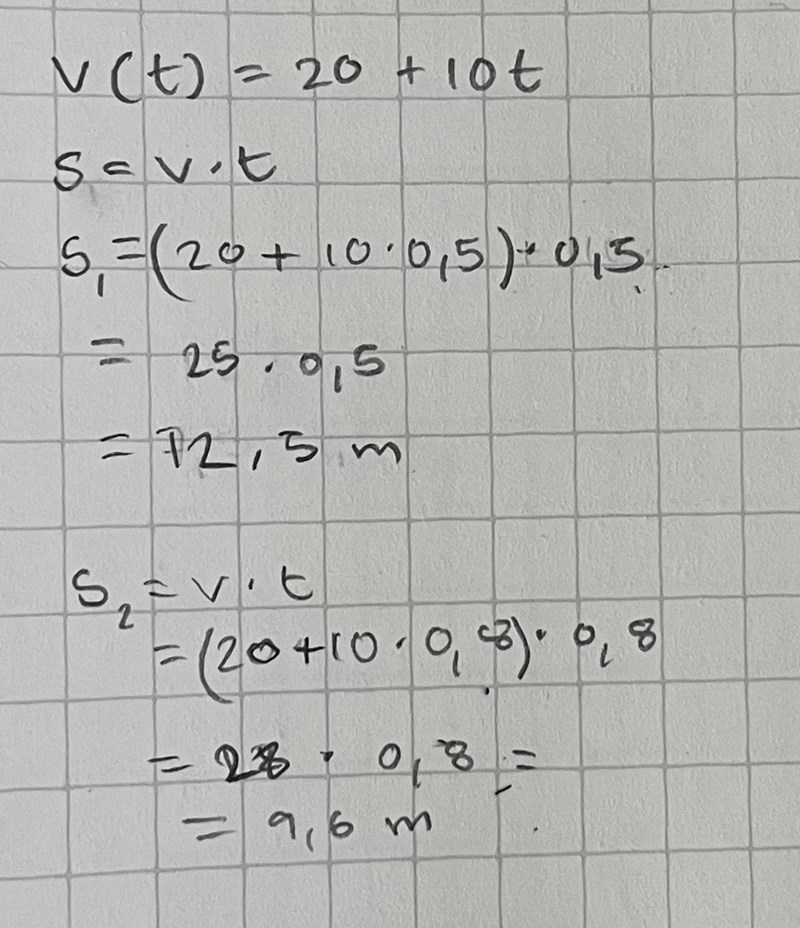 v(t) = 20 + 10t
s = v · t
s₁ = (20 + 10 · 0,5) · 0,5
= 25 · 0,5
= 12,5 m
s₂ = v · t
= (20 + 10 · 0,8) · 0,8
= 28 · 0,8 =
= 9,6 m